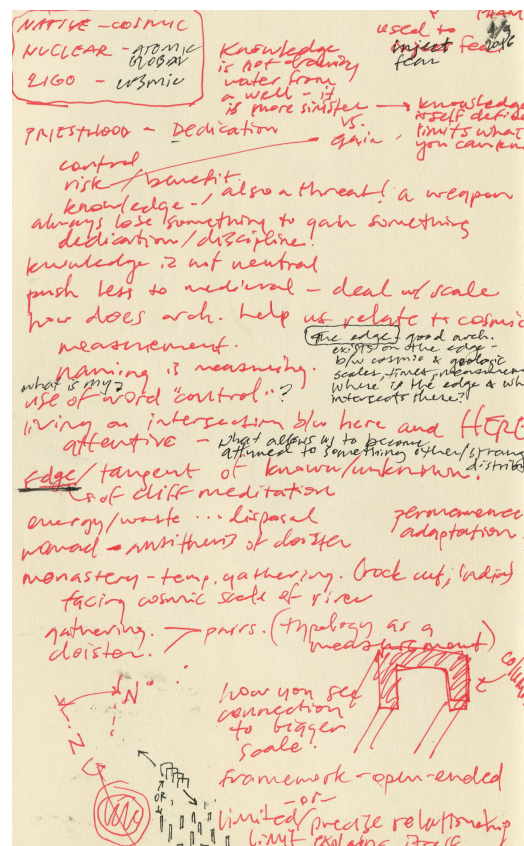 NATIVE - COSMIC
NUCLEAR - ATOMIC
GLOBAL
LIGO - COSMIC
used to
inject fear
fear
1/9
2016
Knowledge
is not drawing
water from
a well - it
is more sinister → knowledge
itself
limits what
you can
PRIESTHOOD - Dedication
vs.
gain
control
risk/benefit
knowledge - / also a threat! a weapon
always lose something to gain something
dedication/discipline.
knowledge is not neutral
push less to medieval - deal w/ scale
how does arch. help us relate to cosmic
measurement.
The edge - good arch.
exists on the edge -
b/w cosmic & geologic
scales, times, measurement
where is the edge &
intersects there?
naming is measuring.
what is my?
use of word "control"?
living on intersection b/w here and HERE
attentive - what allows us to become
attuned to something other/strange
Edge/tangent of known/unknown.
↳ of cliff meditation
energy/waste ... disposal
permanence
adaptation.
nomad - antithesis of cloister
monastery - temp. gathering. (rock cut, India)
facing cosmic scale of river
gathering. > pairs. (typology as a
cloister. measurement)
N
how you see
connection
to bigger
scale.
framework - open-ended
OR
-or-
limited/precise relationship
limit explains itself